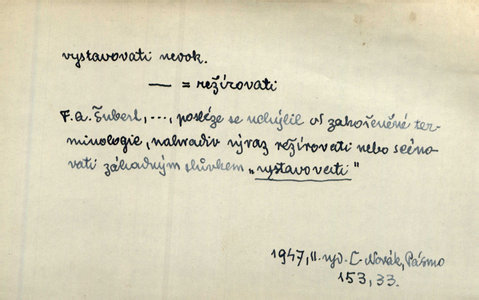 vystavovati nedok.
— = režírovati
F. A. Šubert, ..., posléze se uchýlil od zakořeněné ter-
minologie, nahradiv výraz režírovati nebo scéno-
vati záhadným slůvkem „vystavovati"
1947, II. vyd. L. Novák, Pásmo
153, 33.